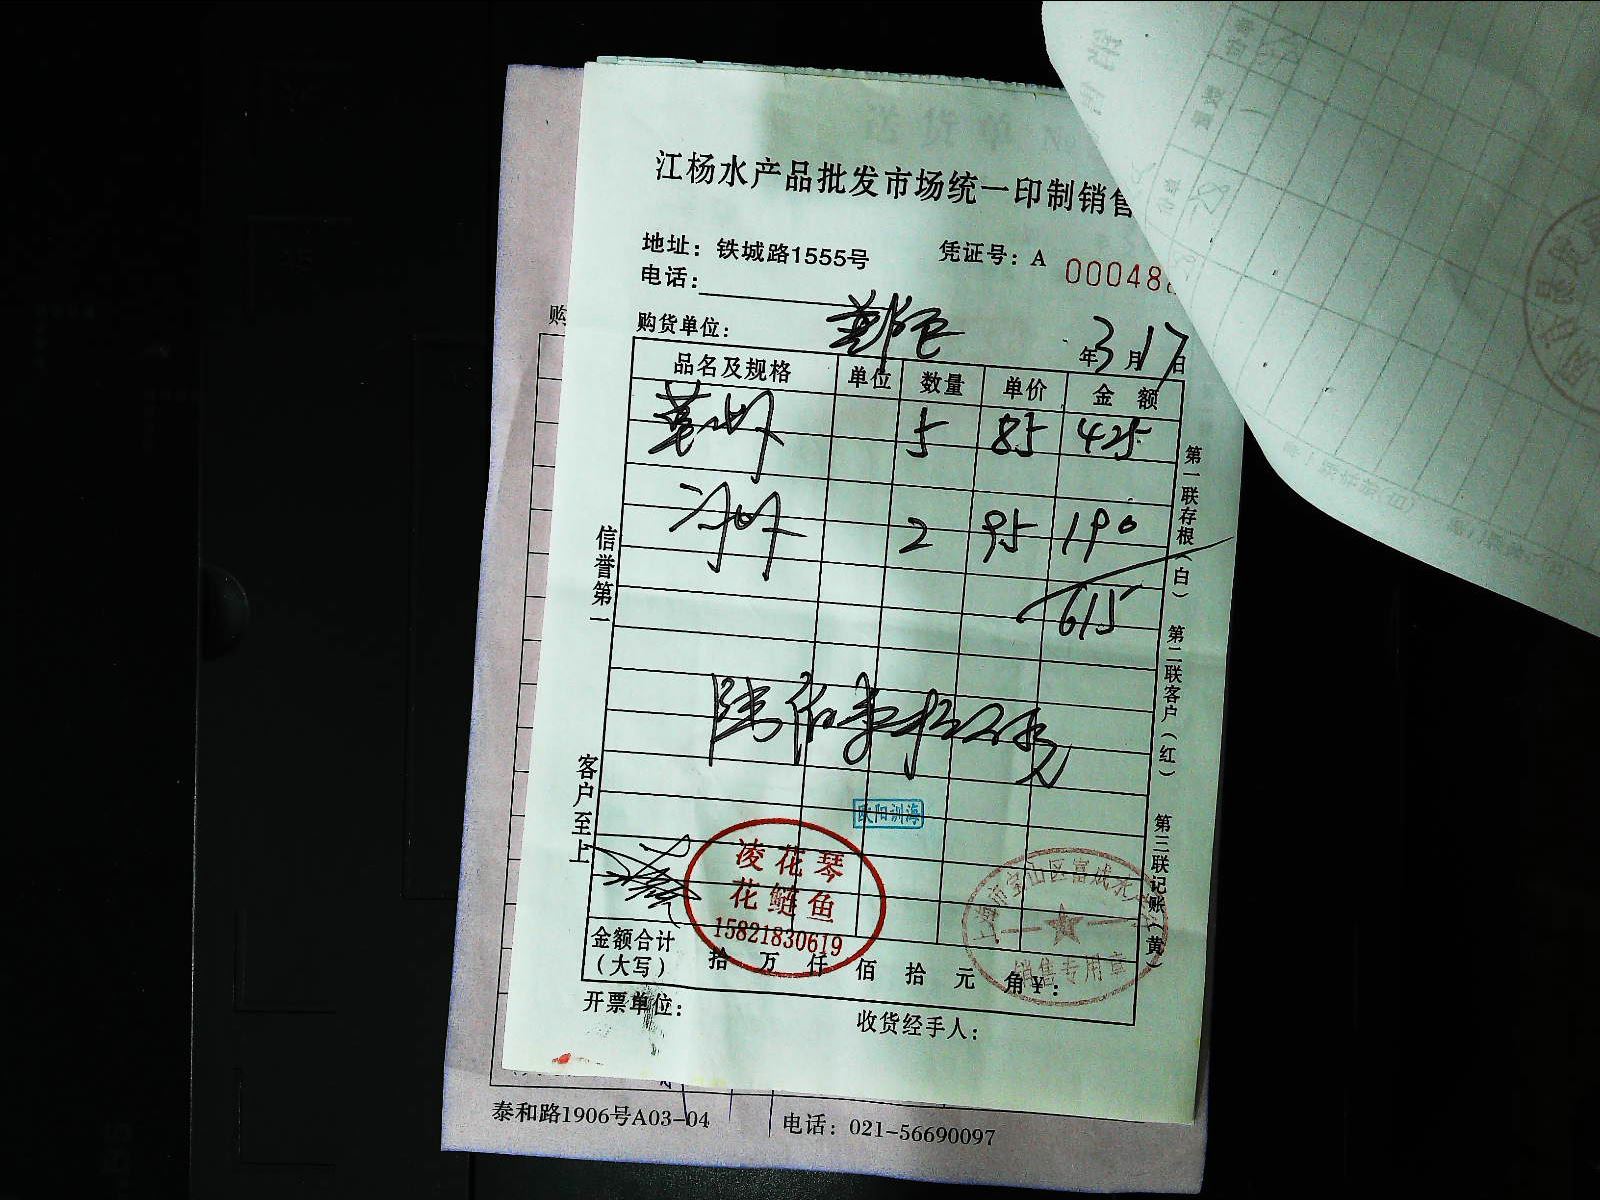 送货单 No
江杨水产品批发市场统一印制销售
地址：铁城路1555号 凭证号：A 00048
电话：
购货单位： 年3月17日
品名及规格 单位 数量 单价 金额
5 85 425
2 95 190
615
陆佰壹拾伍元
信誉第一
客户至上
第一联存根（白） 第二联客户（红） 第三联记账（黄）
欧阳训海
凌花琴
花鲢鱼
15821830619
销售专用章
金额合计
（大写） 拾 万 仟 佰 拾 元 角 ¥：
开票单位： 收货经手人：
购
泰和路1906号A03-04 电话：021-56690097